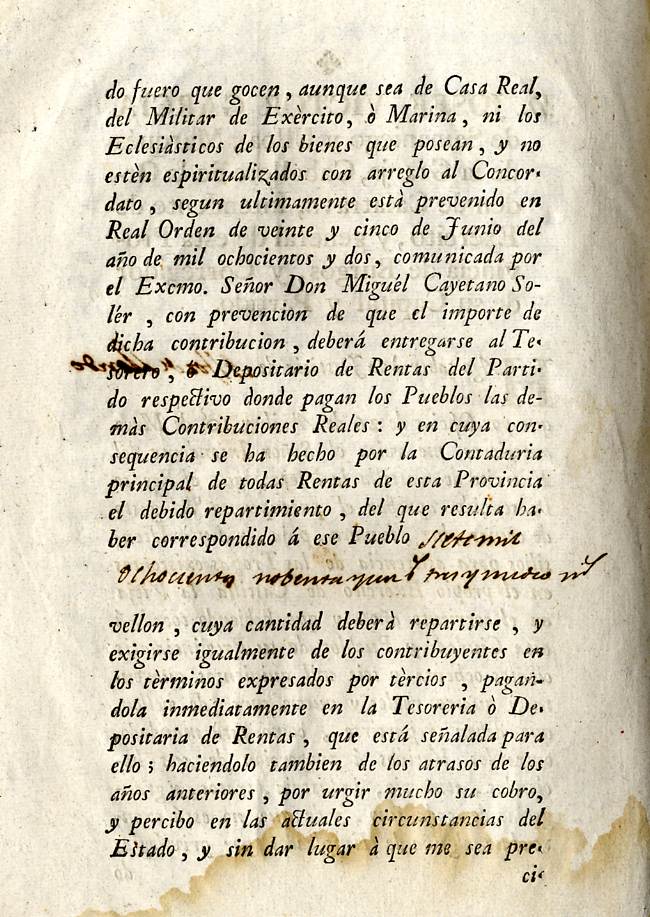 do fuero que gocen, aunque sea de Casa Real,
del Militar de Exèrcito, ò Marina, ni los
Eclesiàsticos de los bienes que posean, y no
estèn espiritualizados con arreglo al Concor-
dato, segun ultimamente està prevenido en
Real Orden de veinte y cinco de Junio del
año de mil ochocientos y dos, comunicada por
el Excmo. Señor Don Miguél Cayetano So-
lér, con prevencion de que el importe de
dicha contribucion, deberá entregarse al Te-
sorero, ò Depositario de Rentas del Parti-
do respectivo donde pagan los Pueblos las de-
màs Contribuciones Reales: y en cuya con-
sequencia se ha hecho por la Contaduria
principal de todas Rentas de esta Provincia
el debido repartimiento, del que resulta ha-
ber correspondido á ese Pueblo siete mil
Ochocientos nobenta y un tres y medio
vellon, cuya cantidad deberà repartirse, y
exigirse igualmente de los contribuyentes en
los tèrminos expresados por tèrcios, pagan-
dola inmediatamente en la Tesoreria ò De-
positaria de Rentas, que está señalada para
ello; haciendolo tambien de los atrasos de los
años anteriores, por urgir mucho su cobro,
y percibo en las actuales circunstancias del
Estado, y sin dar lugar à que me sea pre-
ci-